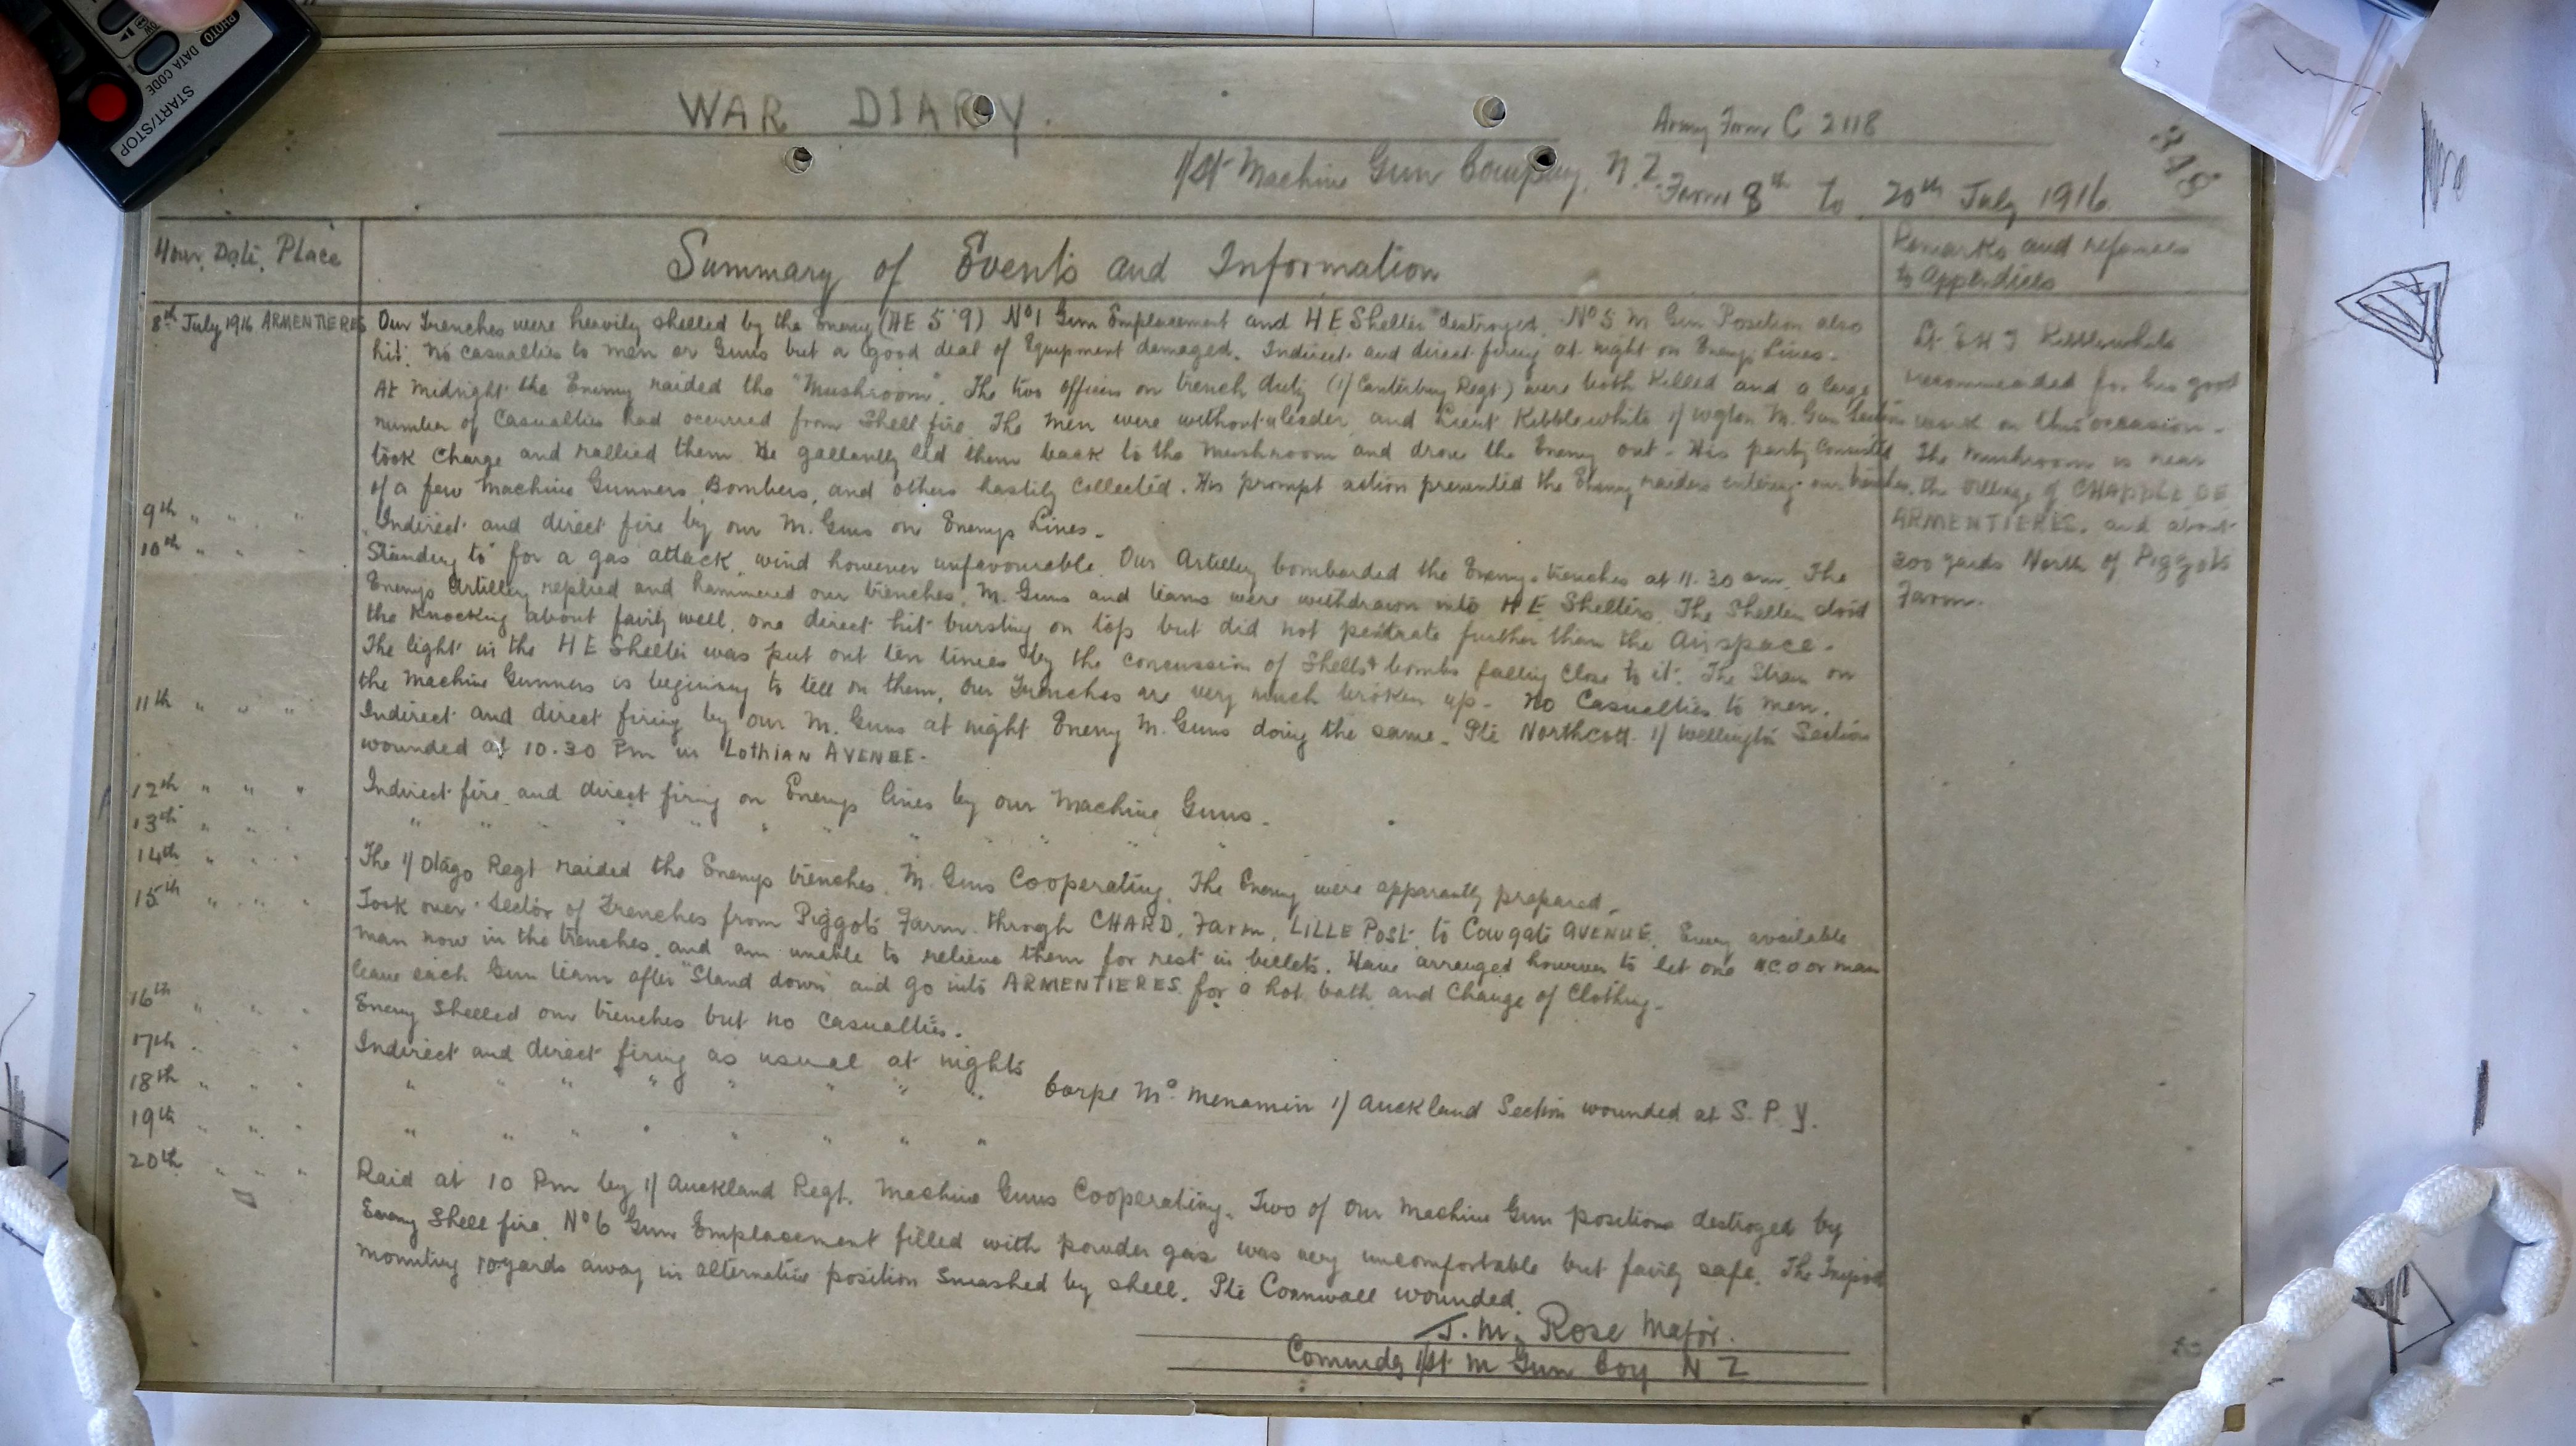 PHOTO
DATA CODE
START/STOP
WAR DIARY.
Army Form C 2118
348
1/st Machine Gun Company, N.Z.
From 8th to 20th July 1916.
Hour, Date, Place
Summary of Events and Information
Remarks and refences
to Appendices
8th July 1916 ARMENTIERES Our Trenches were heavily shelled by the Enemy (HE 5.9) No 1 Gun Emplacement and H E Shelter destroyed. No 5 M Gun Position also
hit. No casualties to men or Guns but a good deal of Equipment damaged. Indirect and direct firing at night on Enemys Lines.
At Midnight the Enemy raided the "Mushroom". The two officers on trench duty (1/ Canterbury Regt) were both killed and a large
number of Casualties had occurred from Shell fire. The men were without a leader and Lieut Kibblewhite 1/ Wgton M. Gun Section
took charge and rallied them. He gallantly led them back to the Mushroom and drove the Enemy out. His party consisted
of a few Machine Gunners, Bombers, and others hastily collected. His prompt action prevented the Enemy raiders entering our trenches.
Lt E H J Kibblewhite
recommended for his good
work on this occasion.
The Mushroom is near
the village of CHAPPLE DE
ARMENTIERES. and about
300 yards North of Piggots
Farm.
9th " " " Indirect and direct fire by our M. Guns on Enemys Lines.
10th " " " "Standing to" for a gas attack, wind however unfavourable. Our Artillery bombarded the Enemys trenches at 11.30 am. The
Enemys Artillery replied and hammered our trenches. M. Guns and teams were withdrawn into H E Shelters. The Shelters stood
the knocking about fairly well, one direct hit bursting on top but did not pentrate further than the Airspace.
The light in the H E Shelter was put out ten times by the concussion of Shells & bombs falling close to it. The Strain on
the Machine Gunners is begining to tell on them. Our Trenches are very much broken up. No Casualties to men.
11th " " " Indirect and direct firing by our M. Guns at night Enemy M. Guns doing the same. Pte Northcott 1/ Wellington Section
wounded at 10.30 Pm in LOTHIAN AVENUE.
12th " " " Indirect fire and direct firing on Enemys lines by our Machine Guns.
13th " " " " " " " " " " " " " "
14th " " " The 1/ Otago Regt raided the Enemys trenches. M. Guns Cooperating. The Enemy were apparently prepared.
15th " " " Took over Sector of Trenches from Piggots Farm through CHARD. Farm, LILLE POST, to Cowgate AVENUE. Every available
man now in the trenches, and am unable to relieve them for rest in billets. Have arranged however to let one NCO or man
leave each Gun team after "Stand down" and go into ARMENTIERES for a hot bath and Change of Clothing.
16th " " " Enemy Shelled our trenches but no casualties.
17th " " " Indirect and direct firing as usual at nights
18th " " " " " " " " " " " Corpl Mc Menamin 1/ Auckland Section wounded at S. P. Y.
19th " " " " " " " " " " "
20th " " " Raid at 10 Pm by 1/ Auckland Regt. Machine Guns Cooperating. Two of our Machine Gun positions destroyed by
Enemy Shell fire. No 6 Gun Emplacement filled with powder gas was very uncomfortable but fairly safe. The Tripod
mounting 10 yards away in alternative position smashed by shell. Pte Cornwall wounded.
J. M. Rose Major.
Commdg 1/st M Gun Coy N Z